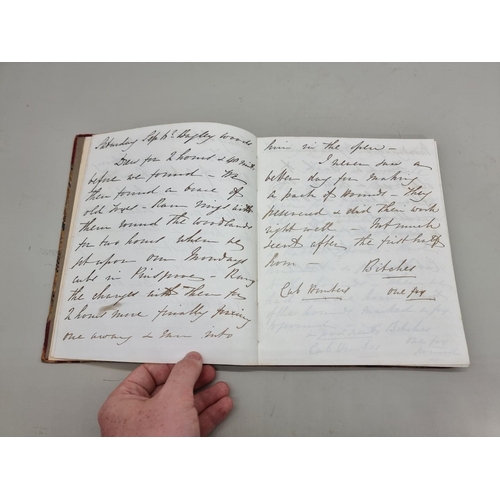 Saturday Sep 6th Bagley woods
Drew for 2 hours & 40 mts
before we found - We
then found a brace of
old Foxes - Ran ring with
them round the woodlands
for two hours when we
got upon our Mondays
cubs in Kinsgrove - Rung
the changes with them for
2 hours more finally forcing
one away & ran into
him in the open -
I never saw a
better day for making
a pack of Hounds - They
persevered & did their work
right well - Not much
scent after the first half
hour - Bitches
Cub Hunters one fox